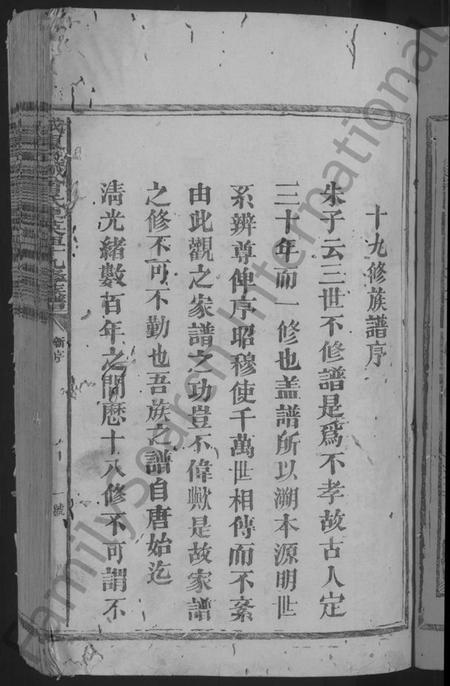 十九修族譜序
朱子云三世不修譜是爲不孝故古人定
三十年而一修也盖譜所以溯本源明世
系辨尊俾序昭穆使千萬世相傳而不紊
由此觀之家譜之功豈不偉歟是故家譜
之修不可不勤也吾族之譜自唐始迄
清光緒數百年之間歷十八修不可謂不
新序
一號
FamilySearch International